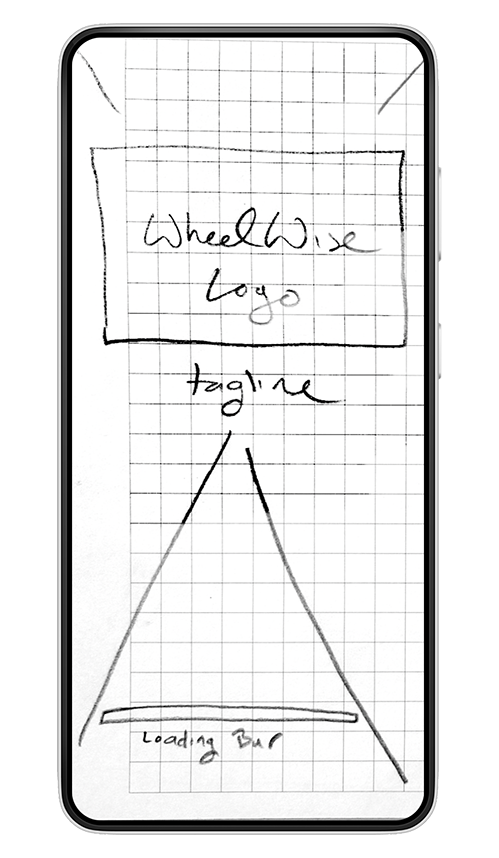 WheelWise
Logo
tagline
Loading Bar